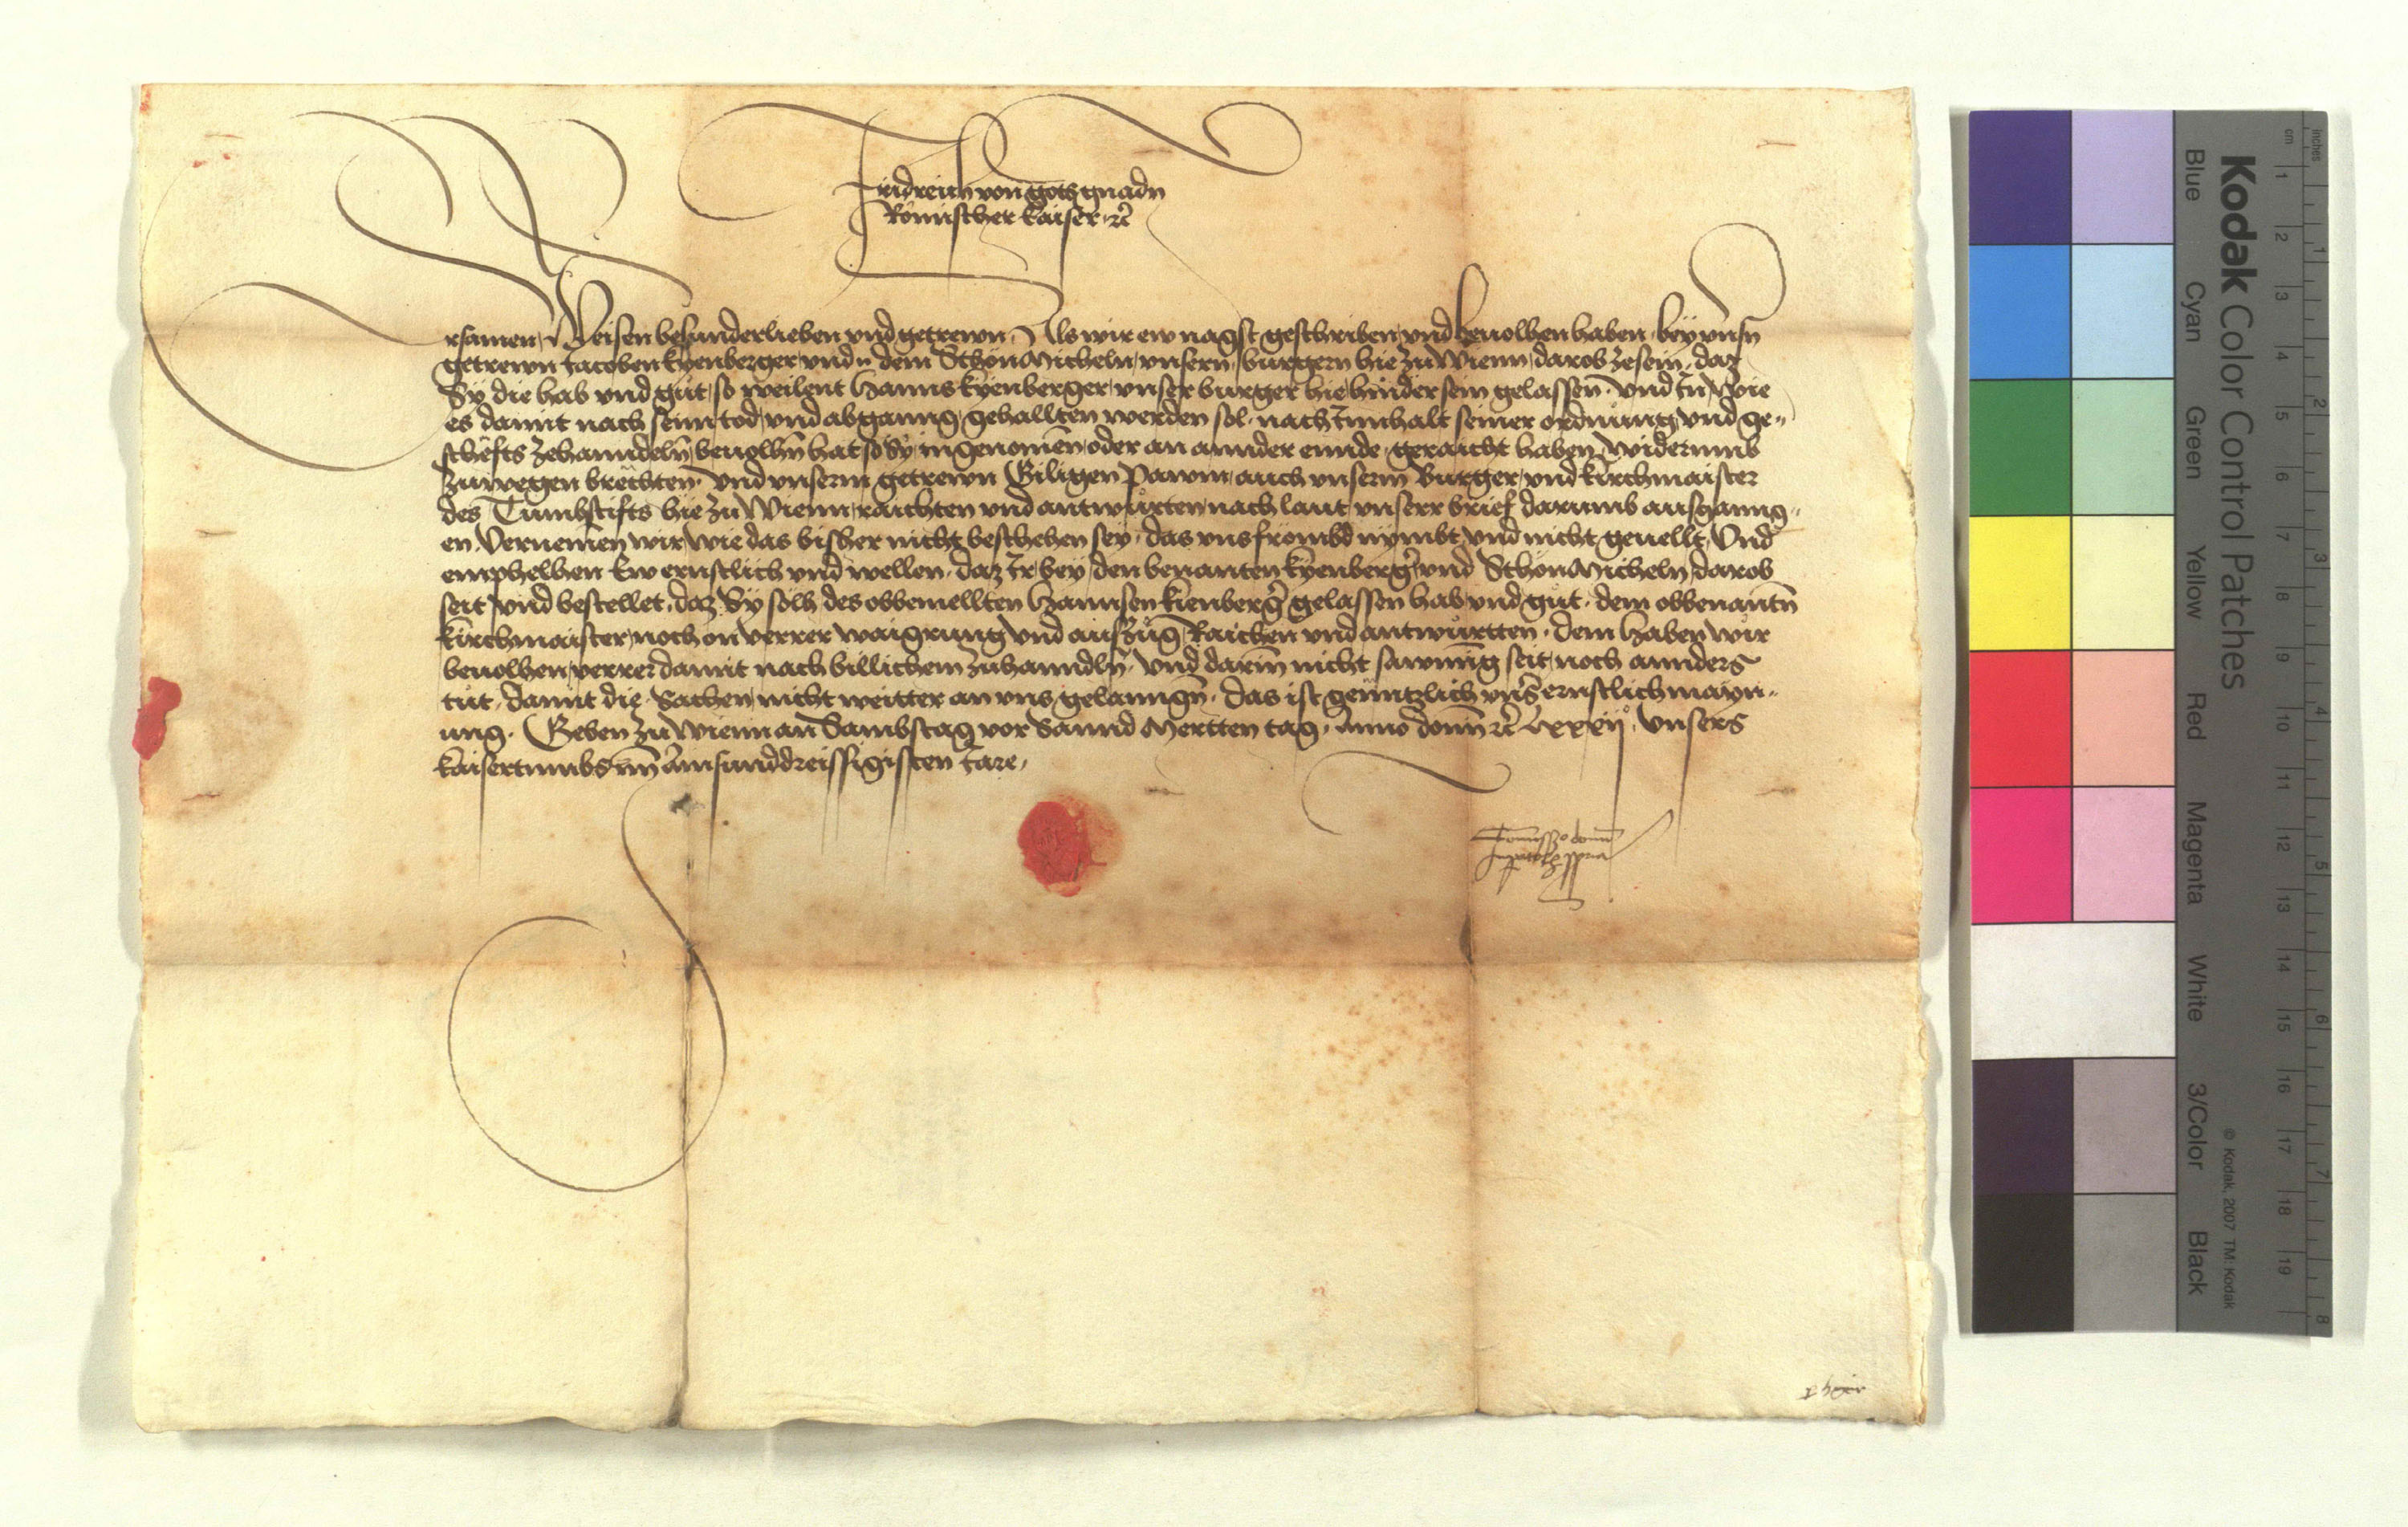 Fridreich von gots gnadn
Römischer kaiser ⁊c̄
Ersamen, Weisen besunderlieben vnd getrewn, Als wir ew nagst geschriben vnd beuolhen haben, bey vnsn̄
getrewn Jacoben kyenberger vnd n dem SchönMicheln, vnsern burgern hie zu Wienn, darob zesein, daz
Sy die hab vnd gut, so weilent Hanns kyenberger, vnser burger hie hinder sein gelassen. vnd In wie
es damit nach seinn tod, vnd abganng gehallten werden sol, nach Innhalt seiner ordnung vnd ge„
schêfts zehanndeln̄ beuolhn̄ hat so Sy ingenomen, oder an annder ennde, geraicht haben, widerumb
zuwegen brêchten. vnd vnserm getrewn Giligen Pawm, auch vnserm Burger, vnd kirchmaister
des Tumbstifts hie zu Wienn, raichten vnd antwurten, nach laut vnserr brief darumb ausganng„
en Vernemen wir, wie das bisher nicht beschehen sey, das vns frömbd nymbt, vnd nicht geuellt, Vnd
emphelhen Ew ernstlich vnd wellen, daz Ir bey den benanten kyenberg̉ vnd SchönMicheln, darob
seit, vnd bestellet, daz Sy solh des obbemellten Hannsen kienberg̉ gelassen hab vnd gut, dem obbenantn̄
kirchmaister, noch on verrer waigrung vnd ausczug Raichen vnd antwurtten, dem haben wir
beuolhen, verrer damit nach billichem zuhanndln̄, vnd darin̄ nicht sawmig seit, noch annders
tut, damit die Sachen, nicht weitter an vns gelanngn̄, das ist genntzlich vns̉ ernstlich maÿn„
ung. Geben zu Wienn an Sambstag vor Sannd Mertten tag, Anno domī ⁊c̄ Lxxxijº, Vnsers
kaisertumbs im̄ ainsunddreissigisten Jare,
Com̄issº domī
Imꝑatoris